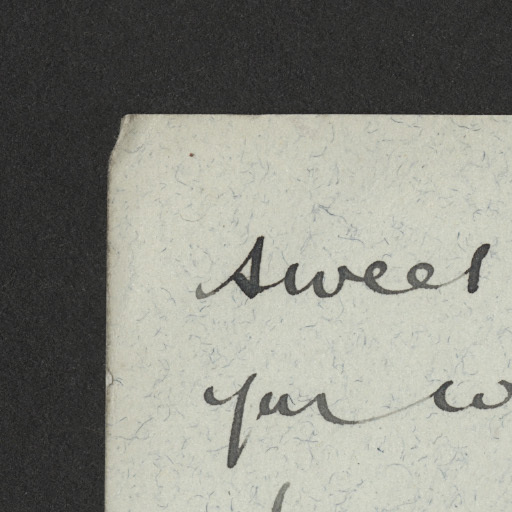 sweet
your w